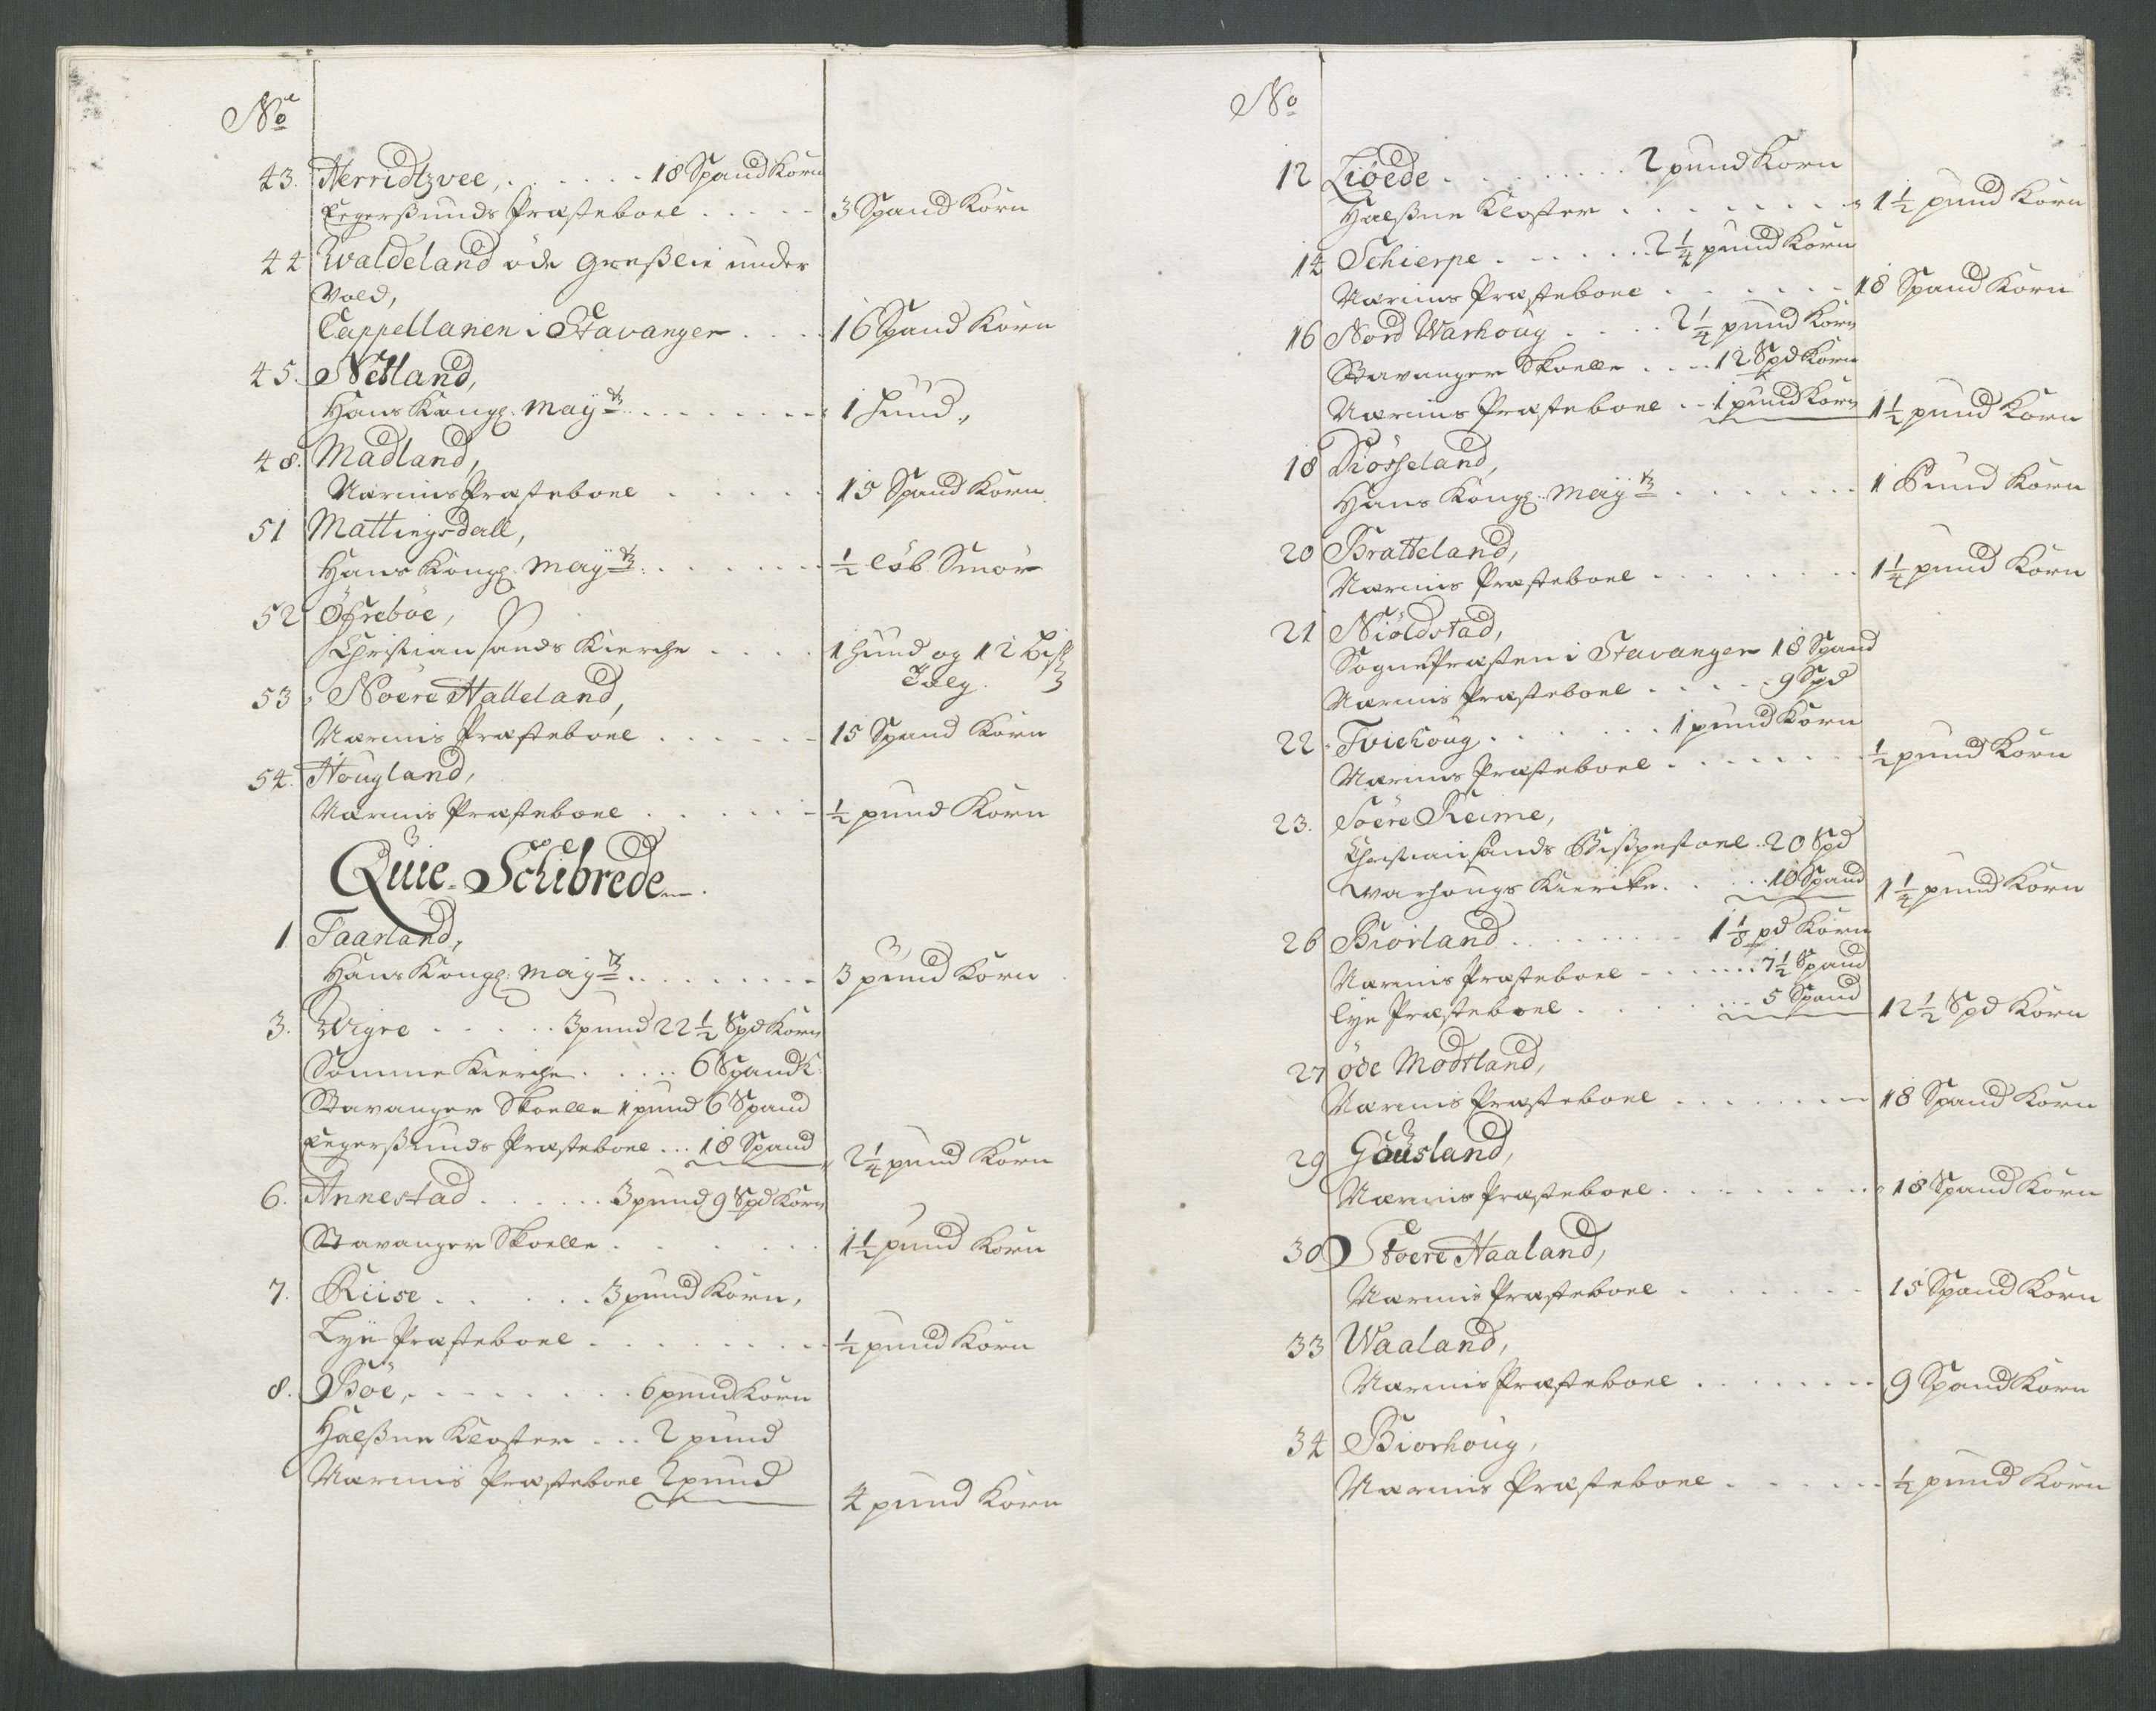 No
43. Herridtzvee, . . . . . 18 Spand Korn
Eegerßunds Præsteboel . . . . 3 Spand Korn
44 Waldeland øde Græßlie under
Vold,
Cappellanen i Stavanger . . . . 16 Spand Korn
45. Netland,
Hans Kongl. Mayts. . . . . . . . 1 Hund,
48. Madland,
Nærims Præsteboel . . . . . 15 Spand Korn
51 Mattingsdall,
Hans Kongl. Mayts. . . . . . . ½ løb Smör
52 Öfreböe,
Christiansands Kierche . . . . 1 hund og 12 Bis
Talg.
53 Noere Halleland,
Nærims Præsteboel . . . . . . 15 Spand Korn
54. Hougland,
Nærims Præsteboel . . . . . . ½ pund Korn
Quie-Schibrede.
1 Taarland,
Hans Kongl. Mayts. . . . . . . . 3 pund Korn
3. Wigre . . . . . 3 pund 22½ Spd Korn
Somme Kierche . . . . . 6 Spand K.
Stavanger Skoelle 1 pund 6 Spand
Eegerßunds Præsteboel ... 18 Spand 2¼ pund Korn
6. Annestad . . . . . . 3 pund 9 Spd Korn
Stavanger Skoelle . . . . . . 1½ pund Korn
7. Riise . . . . . . 3 pund Korn,
Lye Præsteboel . . . . . . . . ½ pund Korn
8. Böe, . . . . . . . . 6 pund Korn
Halßne Kloster . . . 2 pund
Nærims Præsteboel 2 pund 4 pund Korn
No
12 Liöede . . . . . . . . 2 pund Korn
Halßne Kloster . . . . . . . . 1½ pund Korn
14 Schierpe . . . . . . 2¼ pund Korn
Nærims Præsteboel . . . . . . 18 Spand Korn
16 Nord Warhoug . . . . 2¼ pund Korn
Stavanger Skoelle . . . . 12 Spd Korn
Nærims Præsteboel . . 1 pund Korn 1½ pund Korn
18 Diösseland,
Hans Kongl. Mayts . . . . . . . 1 Pund Korn
20 Bratteland,
Nærims Præsteboel . . . . . . . . 1¼ pund Korn
21 Niöldstad,
Sognepræsten i Stavanger 18 Spand
Nærims Præsteboel . . . . . 9 Spd
22. Tviehoug . . . . . . . 1 pund Korn
Nærims Præsteboel . . . . . . . ½ pund Korn
23. Söere Reime,
Christiansands Bispestoel . 20 Spd
Warhougs Kiercke . . . . . 10 Spand 1¼ pund Korn
26 Biorland . . . . . . . . 1⅛ pd Korn
Nærims Præsteboel . . . . . . 7½ Spand
Lye Præsteboel . . . . . . . 5 Spand 12½ Spd Korn
27 öde Modtland,
Nærims Præsteboel . . . . . . . 18 Spand Korn
29 Gousland,
Nærims Præsteboel . . . . . . . 18 Spand Korn
30 Stoere Haaland,
Nærims Præsteboel . . . . . . 15 Spand Korn
33 Waaland,
Nærims Præsteboel . . . . . . . 9 Spand Korn
34 Biorhoug,
Nærims Præsteboel . . . . . . ½ pund Korn